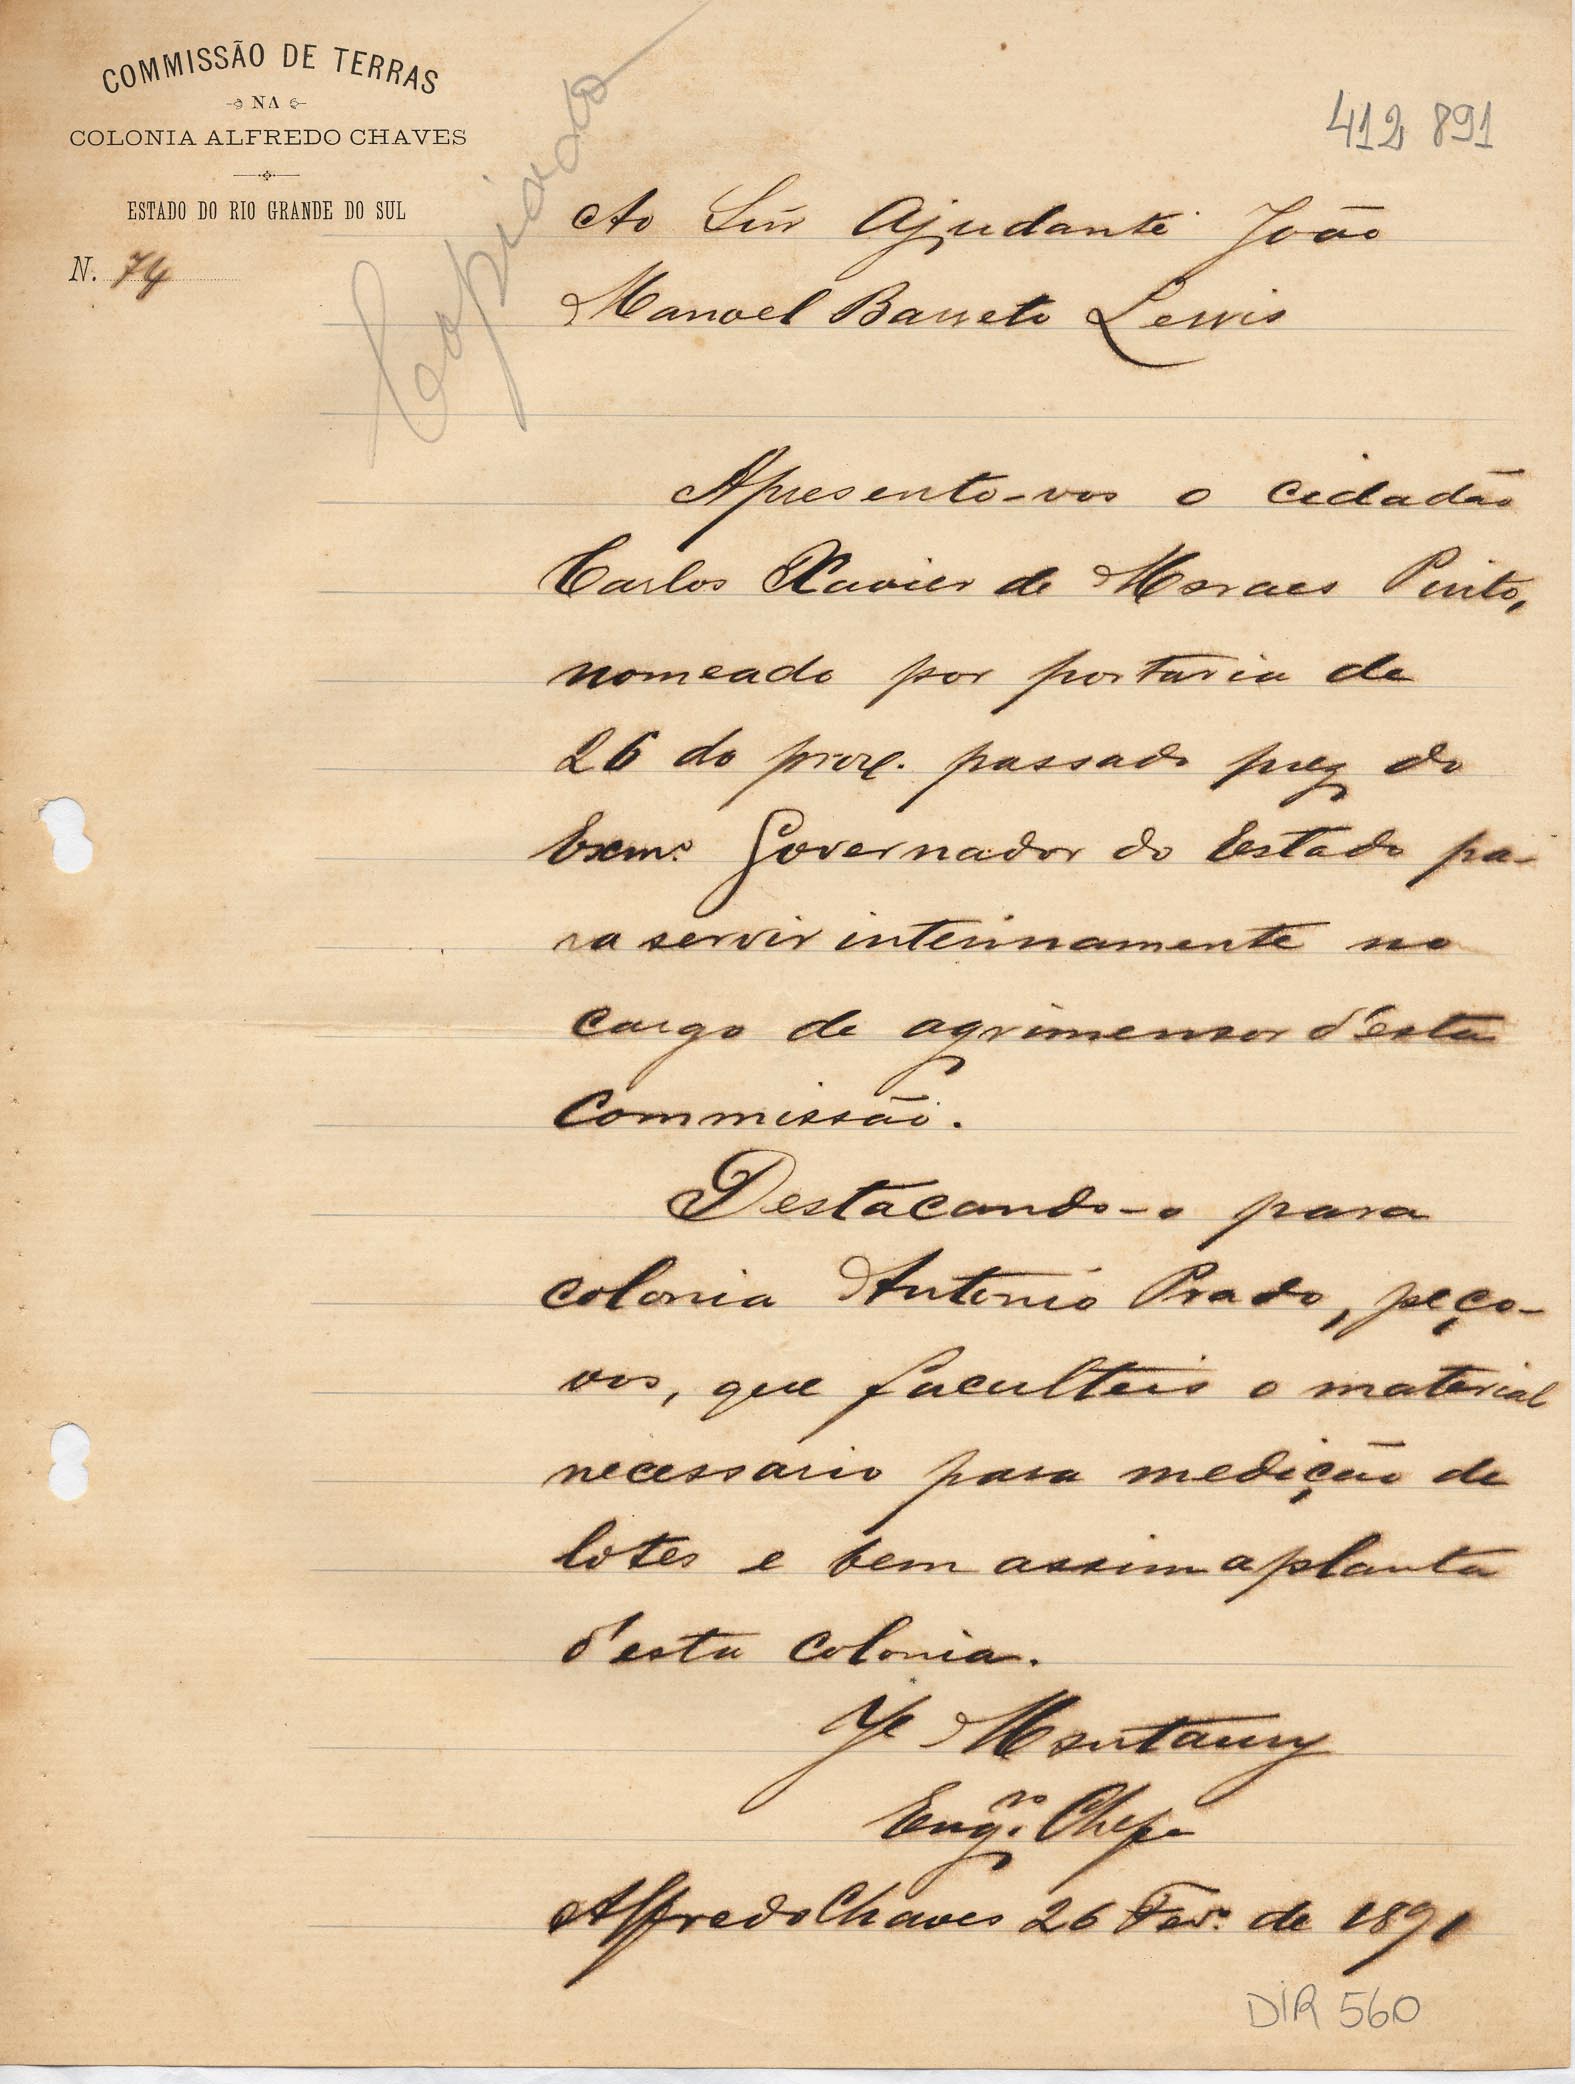 COMMISSÃO DE TERRAS
NA
COLONIA ALFREDO CHAVES
ESTADO DO RIO GRANDE DO SUL
N. 74
Copiado
412 891
Ao Snr Ajudante João
Manoel Barreto Leiria
Apresento-vos o cidadão
Carlos Xavier de Moraes Pinto,
nomeado por portaria de
26 do prox. passado pelo do
Exmº Governador do Estado pa-
ra servir interinamente no
cargo de agrimensor d'esta
Commissão.
Destacando-o para
colonia Antonio Prado, peço-
vos, que faculteis o material
necessario para medição de
lotes e bem assim a planta
d'esta colonia.
Je Montaury
Engro. Chefe
Alfredo Chaves 26 Fevº de 1891
DIR 560